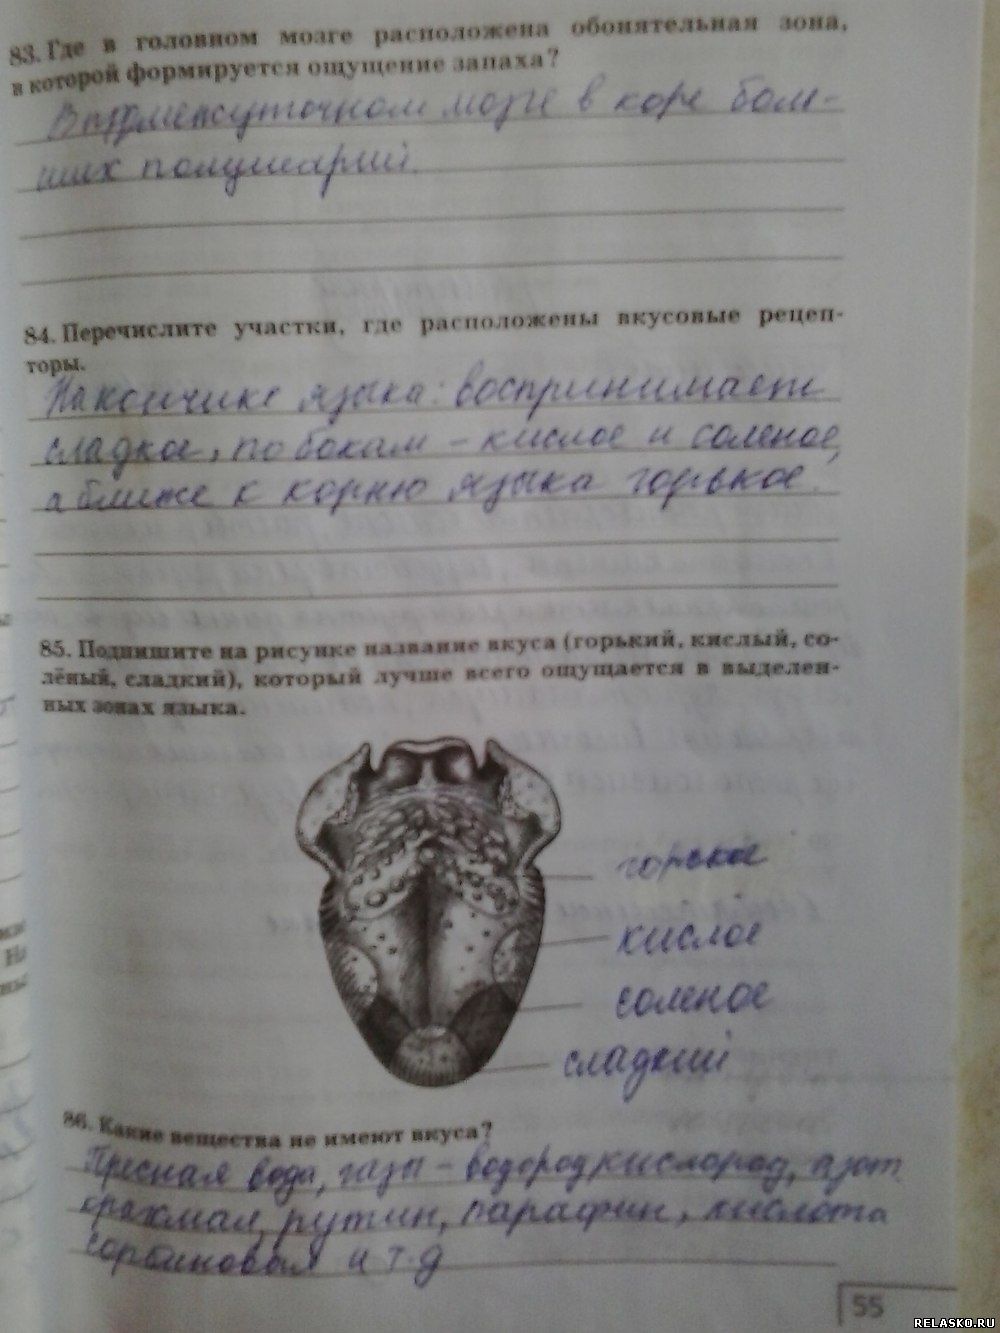 83. Где в головном мозге расположена обонятельная зона,
в которой формируется ощущение запаха?
В промежуточном мозге в коре боль-
ших полушарий.
84. Перечислите участки, где расположены вкусовые рецеп-
торы.
На кончике языка: воспринимает
сладкое, по бокам – кислое и соленое,
а ближе к корню языка горькое.
85. Подпишите на рисунке название вкуса (горький, кислый, со-
лёный, сладкий), который лучше всего ощущается в выделен-
ных зонах языка.
горькое
кислое
соленое
сладкий
86. Какие вещества не имеют вкуса?
Пресная вода, газы – водород, кислород, азот
крахмал, рутин, парафин, кислота
сорбиновая и т.д
55
RELASKO.RU